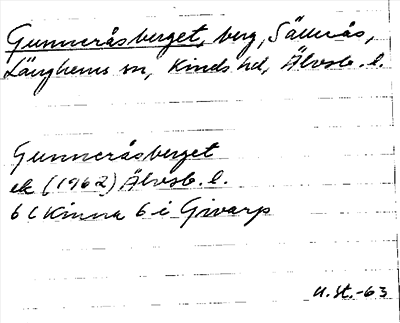 Gunneråsberget, berg, Sälleås,
Länghems sn, Kinds hd, Älvsb. l.
Gunneråsberget
ek (1962) Älvsb. l.
6 C Kinna 6 i Givarp
U. St. -63